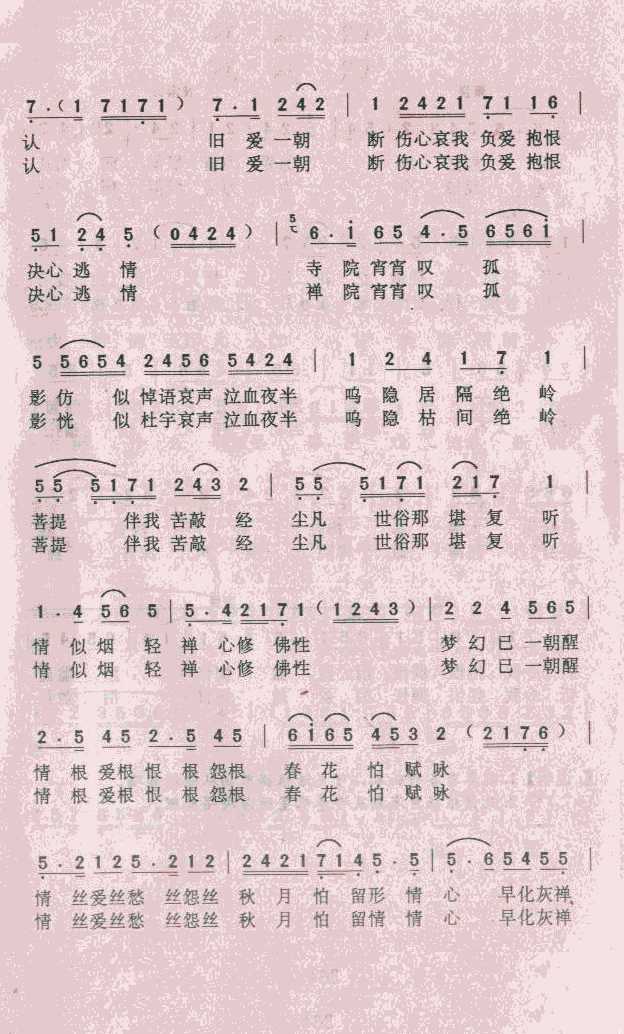 7·(1 7171) 7·1 242 | 1 2421 71 16 |
认 旧 爱 一朝 断 伤心哀我 负爱 抱恨
认 旧 爱 一朝 断 伤心哀我 负爱 抱恨
51 24 5 (0424) | 5 6·i 65 4·5 656i |
决心 逃 情 寺 院 宵宵 叹 孤
决心 逃 情 禅 院 宵宵 叹 孤
5 5654 2456 5424 | 1 2 4 1 7 1 |
影 仿 似 悼语哀声 泣血夜半 呜 隐 居 隔 绝 岭
影 恍 似 杜宇哀声 泣血夜半 呜 隐 枯 间 绝 岭
55 5171 243 2 | 55 5171 217 1 |
菩提 伴我 苦敲 经 尘凡 世俗那 堪 复 听
菩提 伴我 苦敲 经 尘凡 世俗那 堪 复 听
1·4 56 5 | 5·4 2171 (1243) | 2 2 4 565 |
情 似 烟 轻 禅 心修 佛性 梦 幻 已 一朝醒
情 似 烟 轻 禅 心修 佛性 梦 幻 已 一朝醒
2·5 45 2·5 45 | 6i65 453 2 (2176) |
情 根 爱根 恨 根 怨根 春 花 怕 赋 咏
情 根 爱根 恨 根 怨根 春 花 怕 赋 咏
5·2125·212 | 2421 714 5·5 | 5·6 5455 |
情 丝爱丝愁 丝怨丝 秋 月 怕 留形 情 心 早化灰禅
情 丝爱丝愁 丝怨丝 秋 月 怕 留情 情 心 早化灰禅